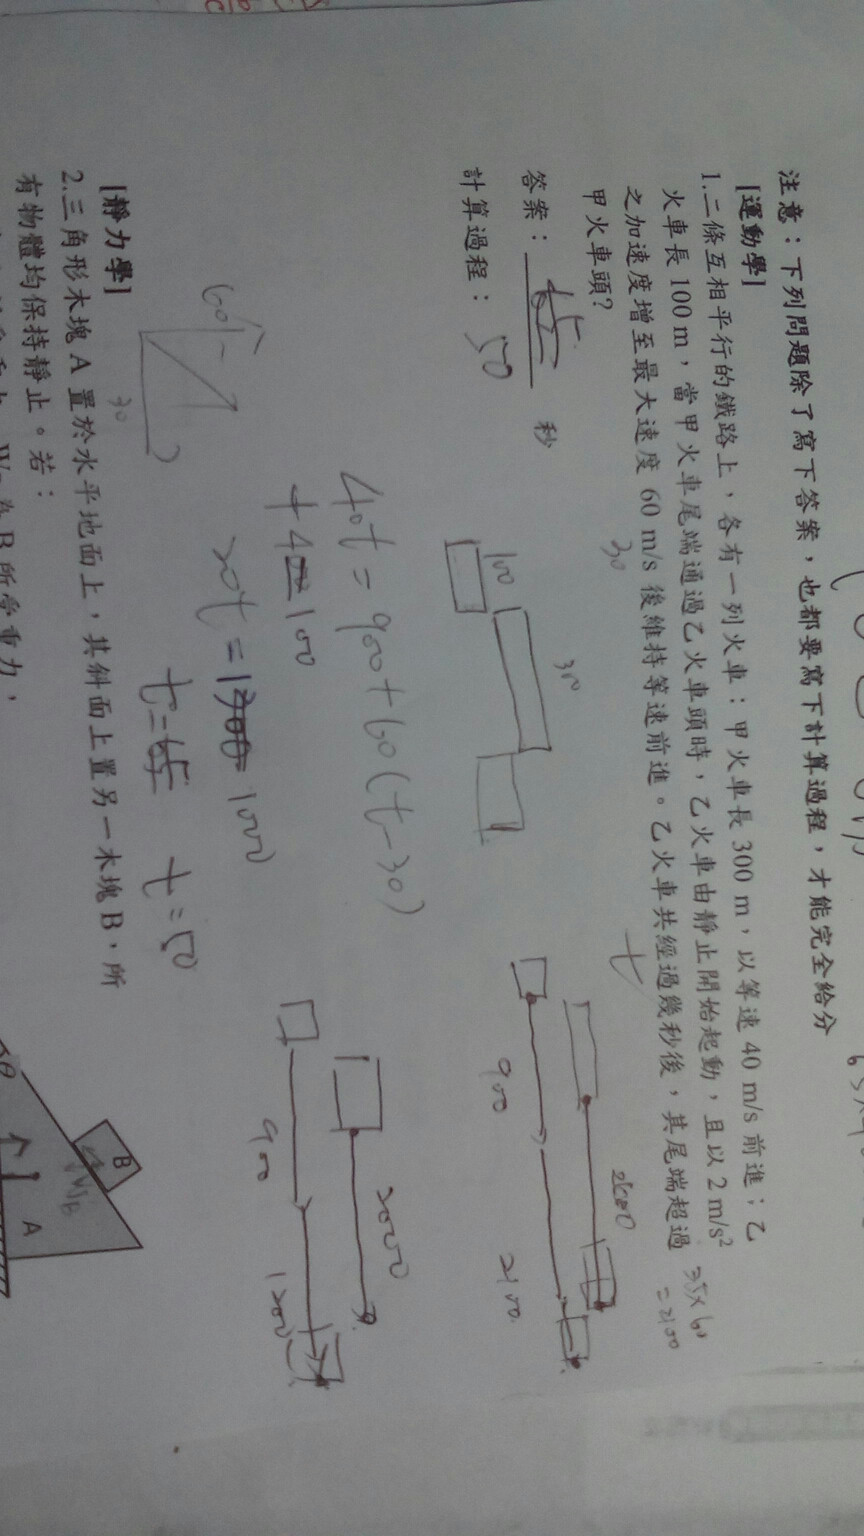 注意：下列問題除了寫下答案，也都要寫下計算過程，才能完全給分
[運動學]
1.二條互相平行的鐵路上，各有一列火車：甲火車長 300 m，以等速 40 m/s 前進；乙
火車長 100 m，當甲火車尾端通過乙火車頭時，乙火車由靜止開始起動，且以 2 m/s²
之加速度增至最大速度 60 m/s 後維持等速前進。乙火車共經過幾秒後，其尾端超過
甲火車頭？
30
t
35×60
=2100
答案： 65 秒
50
計算過程：
100
300
900
2600
2100
40t = 900+60(t-30)
+400
20t = 1300 1000
t=65 t=50
2000
900
1200
60
30
[靜力學]
2.三角形木塊 A 置於水平地面上，其斜面上置另一木塊 B，所
有物體均保持靜止。若：
B
A
θ